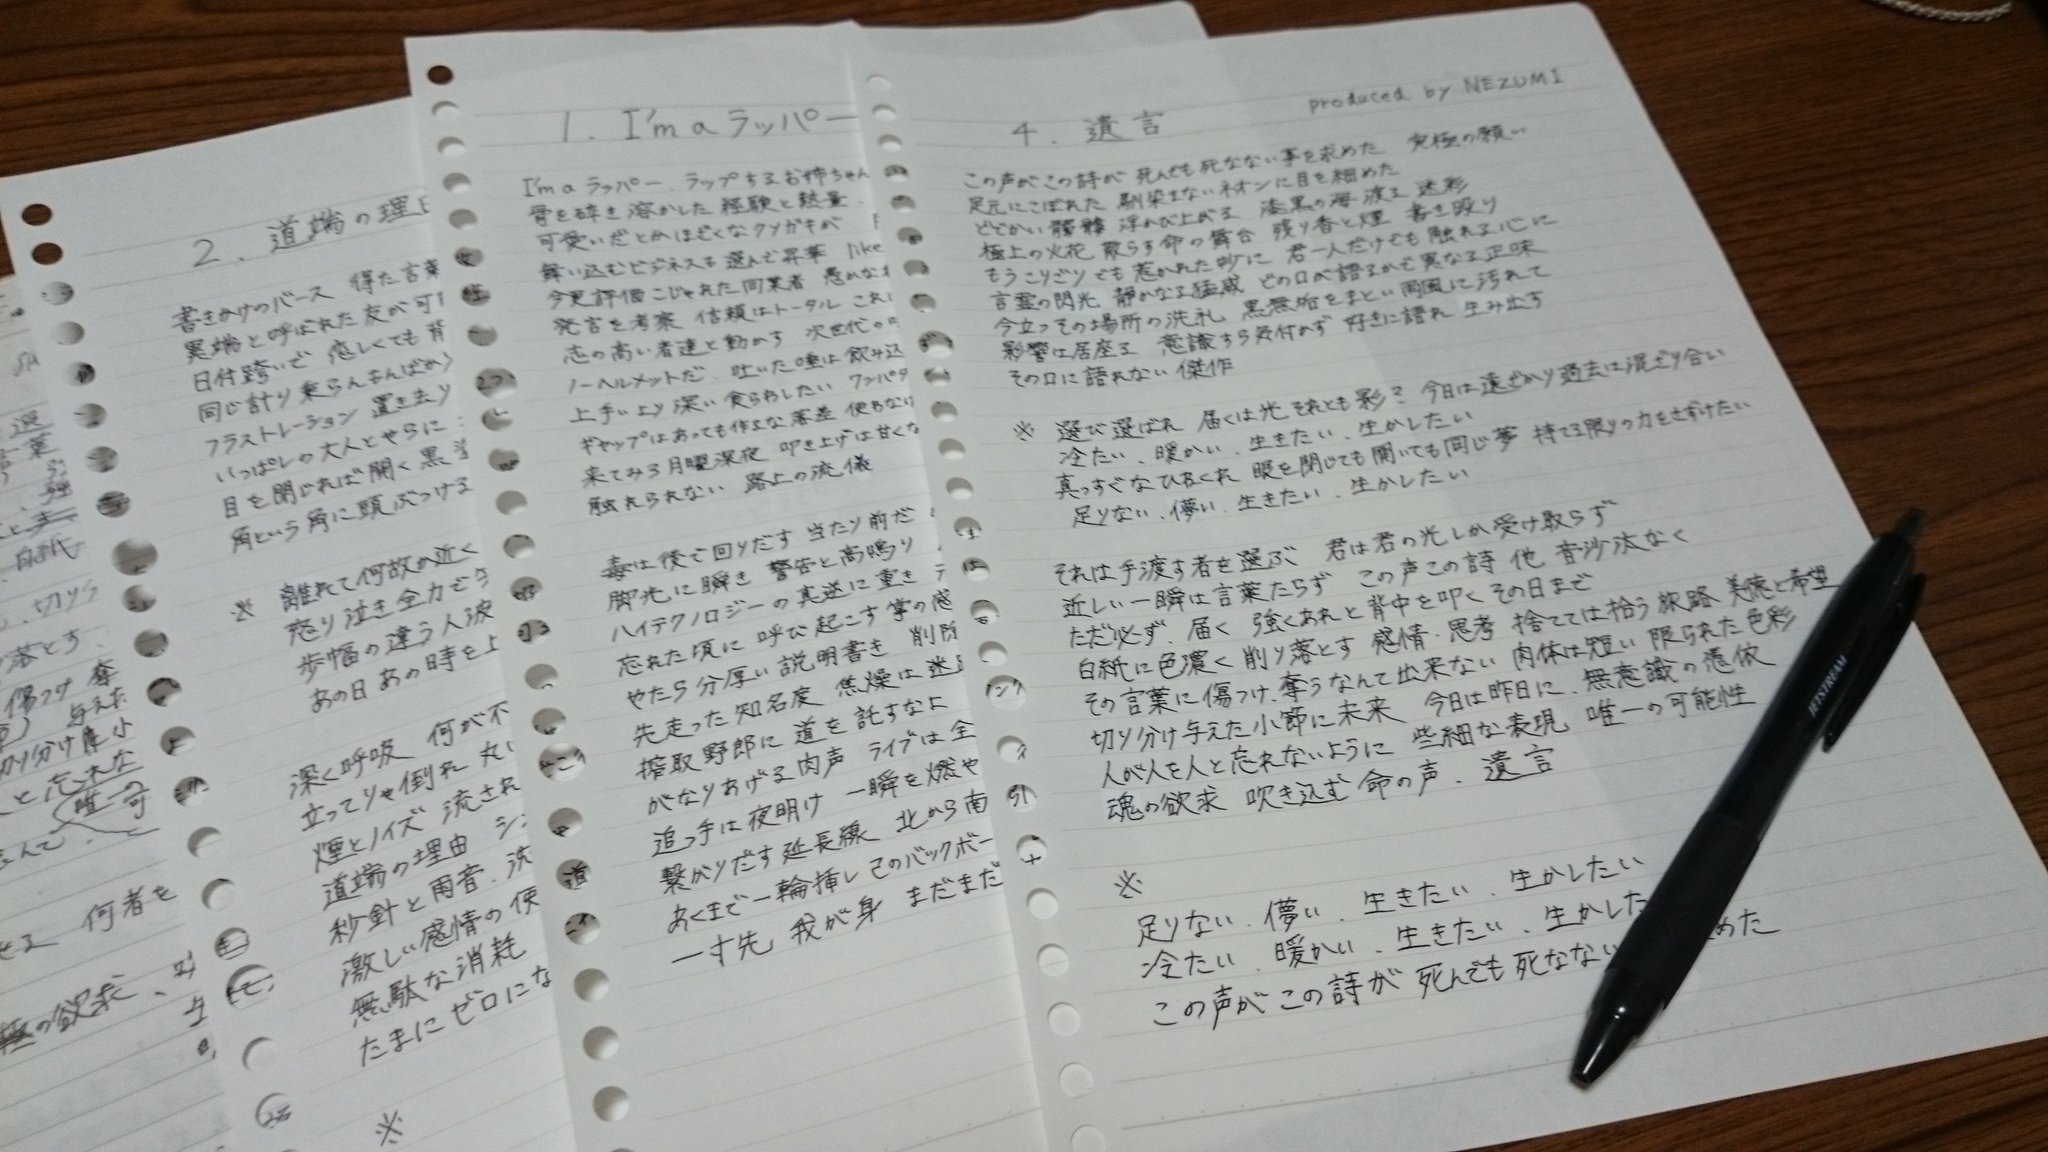 2. 道端の理由
書きかけのバース 得た言葉
異端と呼ばれた友が可
日付跨いで 恋しくても 背
同じ計り乗らんもんばかり
フラストレーション 置き去り
いっぱしの大人とやらに
目を閉じれば開く黒
角という角に頭ぶつける
※ 離れて何故か近く
怒り泣き全力で
歩幅の違う人波
あの日 あの時を
深く呼吸 何が不
立ってりゃ倒れ 丸い
煙とノイズ 流され
道端の理由
秒針と雨音、洗
激しい感情の使
無駄な消耗
たまにゼロにな
※
1. I'm a ラッパー
I'm a ラッパー、ラップするお姉ちゃん
骨を砕き 溶かした 経験と熱量
可愛いだとかほざくなクソガキが
舞い込むビジネスも選んで昇華 like
今更評価こじゃれた同業者 愚めなれ
発言を考察 信頼はトータル これ
志の高い者達と動かす 次世代の
ノーヘルメットだ、吐いた唾は飲み込
上手いより深い食らわしたい ワンパタ
ギャップはあっても作為な落差 使わなけ
来てみろ月曜深夜 叩き上げは甘くな
触れられない 路上の流儀
毒は後で回りだす 当たり前だ
脚光に瞬き 警告と高鳴り
ハイテクノロジーの真逆に重き
忘れた頃に 呼び起こす掌の感
やたら分厚い説明書き 削除
先走った知名度 焦燥は迷
搾取野郎に 道を託すなよ
がなりあげる肉声 ライブは全
追っ手は夜明け 一瞬を燃や
繋がりだす延長線 北から南
あくまで一輪挿し このバックボー
一寸先 我が身 まだまだ
4. 遺言
produced by NEZUMI
この声がこの詩が 死んでも死なない事を求めた 究極の願い
足元にこぼれた 馴染まないネオンに目を細めた
どでかい髑髏 浮かび上がる 漆黒の海 渡る 迷彩
極上の火花 散らす命の舞台 残り香と煙 書き殴り
もうこりごりでも惹かれた妙に 君一人だけでも触れる心に
言霊の閃光 静かなる猛威 どの口が語るかで異なる正味
今立つその場所の洗礼 黒無垢をまとい雨風に汚れて
影響は居座る 意識すら気付かず 好きに語れ 生み出す
その口に語れない傑作
※ 選び選ばれ 届くは光それとも影? 今日は遠ざかり過去は混ざり合い
冷たい、暖かい、生きたい、生かしたい
真っすぐなひねくれ 眼を閉じても開いても同じ夢 持てる限りの力をさずけたい
足りない、儚い、生きたい、生かしたい
それは手渡す者を選ぶ 君は君の光しか受け取らず
近しい一瞬は言葉たらず この声この詩 他 音沙汰なく
ただ必ず、届く 強くあれと背中を叩く その日まで
白紙に色濃く 削り落とす 感情・思考 捨てては拾う旅路 美徳と希望
その言葉に傷つけ、奪うなんて出来ない 肉体は短い 限られた色彩
切り分け与えた小節に未来 今日は昨日に、無意識の憑依
人が人を人と忘れないように 些細な表現、唯一の可能性
魂の欲求 吹き込む 命の声、遺言
※
足りない、儚い、生きたい、生かしたい
冷たい、暖かい、生きたい、生かした
この声が この詩が 死んでも 死なない めた
JETSTREAM